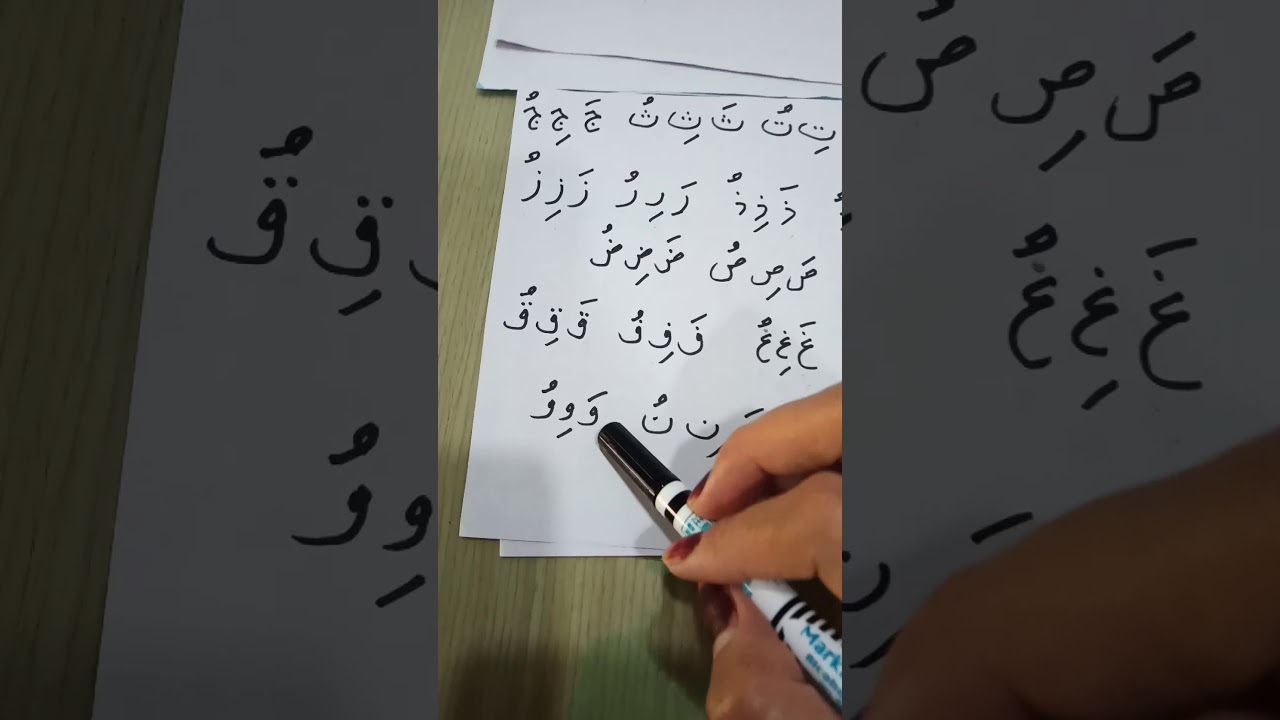 تِ تُ ثَ ثِ ثُ جَ جِ جُ
ذَ ذِ ذُ رَ رِ رُ زَ زِ زُ
صَ صِ صُ ضَ ضِ ضُ
غَ غِ غُ فَ فِ فُ قَ قِ قُ
نِ نُ وَ وِ وُ
Mark